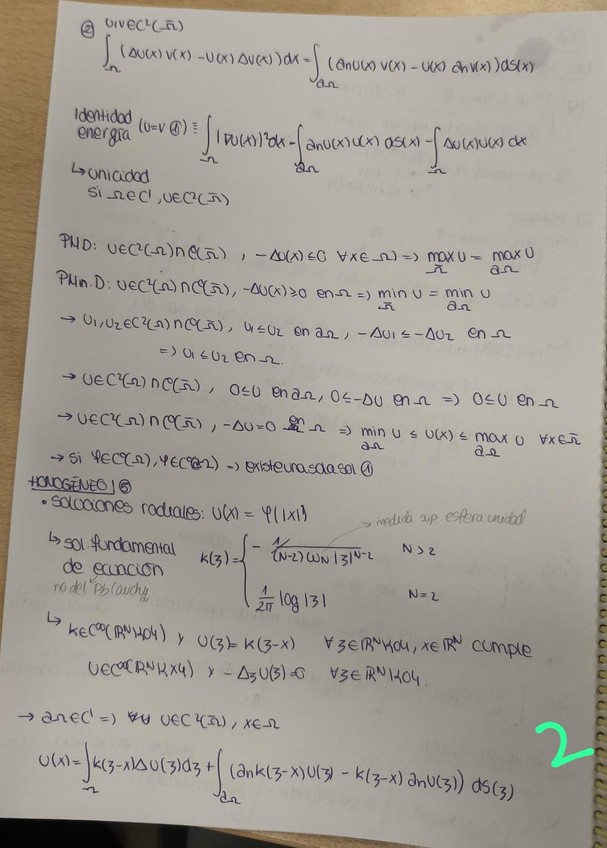 ② u,v∈C²(Ω̄)
∫_Ω (Δu(x)v(x) - u(x)Δv(x))dx = ∫_∂Ω (∂nu(x)v(x) - u(x)∂nv(x))ds(x)
Identidad energía (u=v ①) ≡ ∫_Ω |∇u(x)|²dx - ∫_∂Ω ∂nu(x)u(x) ds(x) - ∫_Ω Δu(x)u(x) dx
↳ unicidad
si Ω∈C¹, u∈C²(Ω̄)
PMD: u∈C²(Ω)∩C(Ω̄), -Δu(x)≤0 ∀x∈Ω) => max_Ω̄ u = max_∂Ω u
PMin.D: u∈C²(Ω)∩C⁰(Ω̄), -Δu(x)≥0 en Ω => min_Ω̄ u = min_∂Ω u
→ u₁,u₂∈C²(Ω)∩C⁰(Ω̄), u₁≤u₂ en ∂Ω, -Δu₁≤-Δu₂ en Ω
=> u₁≤u₂ en Ω.
→ u∈C²(Ω)∩C⁰(Ω̄), 0≤u en ∂Ω, 0≤-Δu en Ω => 0≤u en Ω
→ u∈C²(Ω)∩C⁰(Ω̄), -Δu=0 en Ω => min_∂Ω u ≤ u(x) ≤ max_∂Ω u ∀x∈Ω̄
→ si φ∈C⁰(Ω), φ∈C⁰(∂Ω) → existe una sola sol ①
HOMOGÉNEO ⑥
• soluciones radiales: u(x) = φ(|x|)
→ medida sup esfera unidad
↳ sol. fundamental de ecuación
no del Pb Cauchy
k(ξ) = { - 1/((N-2)ωN|ξ|^{N-2}) N>2
1/2π log|ξ| N=2
↳ k∈C^∞(ℝᴺ\{0}) y u(ξ)=k(ξ-x) ∀ξ∈ℝᴺ\{0}, x∈ℝᴺ cumple
u∈C^∞(ℝᴺ\{x}) y -Δ_ξu(ξ)=0 ∀ξ∈ℝᴺ\{0}.
→ ∂Ω∈C¹ => u∈C²(Ω̄), x∈Ω
u(x) = ∫_Ω k(ξ-x)Δu(ξ)dξ + ∫_∂Ω (∂nk(ξ-x)u(ξ) - k(ξ-x)∂nu(ξ)) ds(ξ)
2